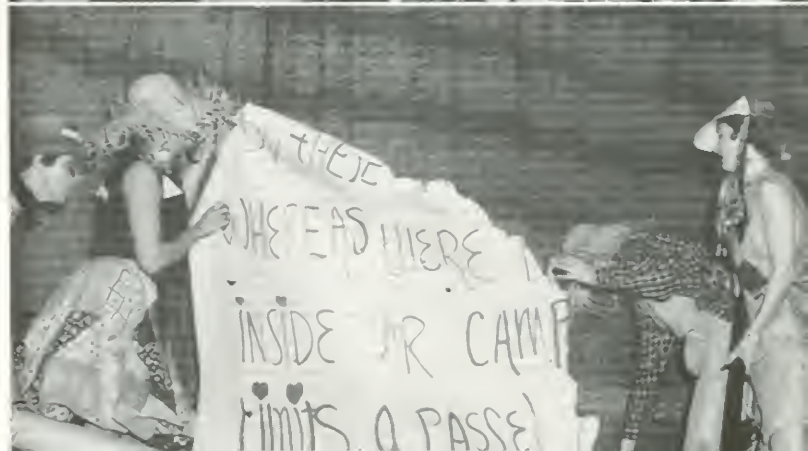 THESE
WHEREAS WERE
INSIDE OUR CAMP
LimiTS. A PASSE